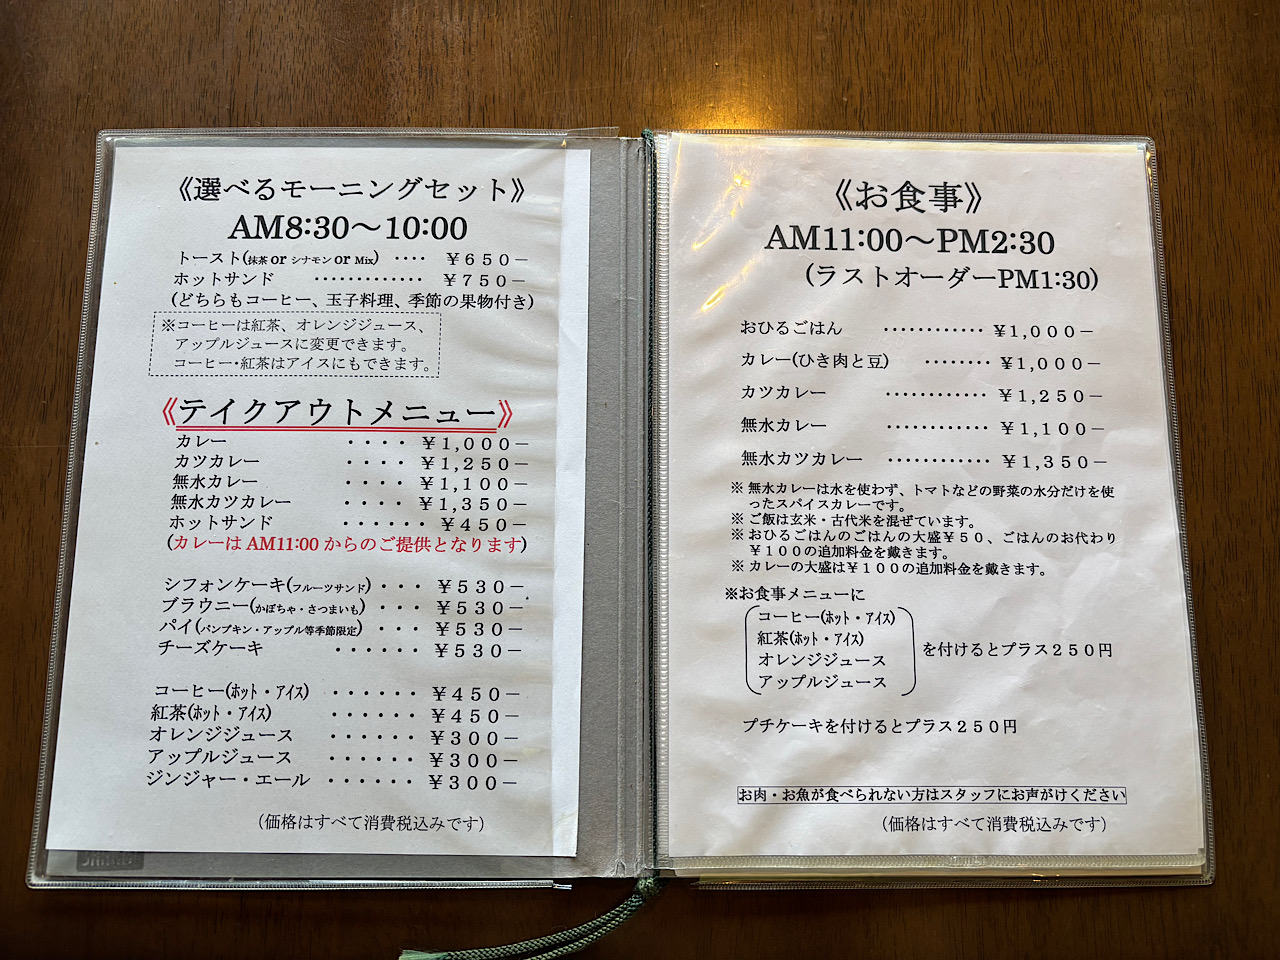 《選べるモーニングセット》
AM8:30～10:00
トースト(抹茶 or シナモン or Mix) ‥‥ ￥６５０－
ホットサンド ‥‥‥‥‥‥ ￥７５０－
(どちらもコーヒー、玉子料理、季節の果物付き)
※コーヒーは紅茶、オレンジジュース、
アップルジュースに変更できます。
コーヒー･紅茶はアイスにもできます。
《テイクアウトメニュー》
カレー ・・・・ ￥１,０００－
カツカレー ・・・・ ￥１,２５０－
無水カレー ・・・・ ￥１,１００－
無水カツカレー ・・・・ ￥１,３５０－
ホットサンド ・・・・・・ ￥４５０－
(カレーは AM11:00 からのご提供となります)
シフォンケーキ(フルーツサンド) ・・・ ￥５３０－
ブラウニー(かぼちゃ・さつまいも) ・・・ ￥５３０－
パイ(パンプキン・アップル等季節限定) ・・・ ￥５３０－
チーズケーキ ・・・・・・ ￥５３０－
コーヒー(ﾎｯﾄ・ｱｲｽ) ・・・・・・ ￥４５０－
紅茶(ﾎｯﾄ・ｱｲｽ) ・・・・・・ ￥４５０－
オレンジジュース ・・・・・・ ￥３００－
アップルジュース ・・・・・・ ￥３００－
ジンジャー・エール ・・・・・・ ￥３００－
(価格はすべて消費税込みです)
《お食事》
AM11:00～PM2:30
(ラストオーダーPM1:30)
おひるごはん ‥‥‥‥‥‥ ￥１,０００－
カレー(ひき肉と豆) ‥‥‥‥ ￥１,０００－
カツカレー ‥‥‥‥‥‥ ￥１,２５０－
無水カレー ‥‥‥‥‥‥ ￥１,１００－
無水カツカレー ‥‥‥‥‥‥ ￥１,３５０－
※ 無水カレーは水を使わず、トマトなどの野菜の水分だけを使
ったスパイスカレーです。
※ ご飯は玄米・古代米を混ぜています。
※ おひるごはんのごはんの大盛￥５０、ごはんのお代わり
￥１００の追加料金を戴きます。
※ カレーの大盛は￥１００の追加料金を戴きます。
※お食事メニューに
コーヒー(ﾎｯﾄ・ｱｲｽ)
紅茶(ﾎｯﾄ・ｱｲｽ)
オレンジジュース
アップルジュース
を付けるとプラス２５０円
プチケーキを付けるとプラス２５０円
お肉・お魚が食べられない方はスタッフにお声がけください
(価格はすべて消費税込みです)